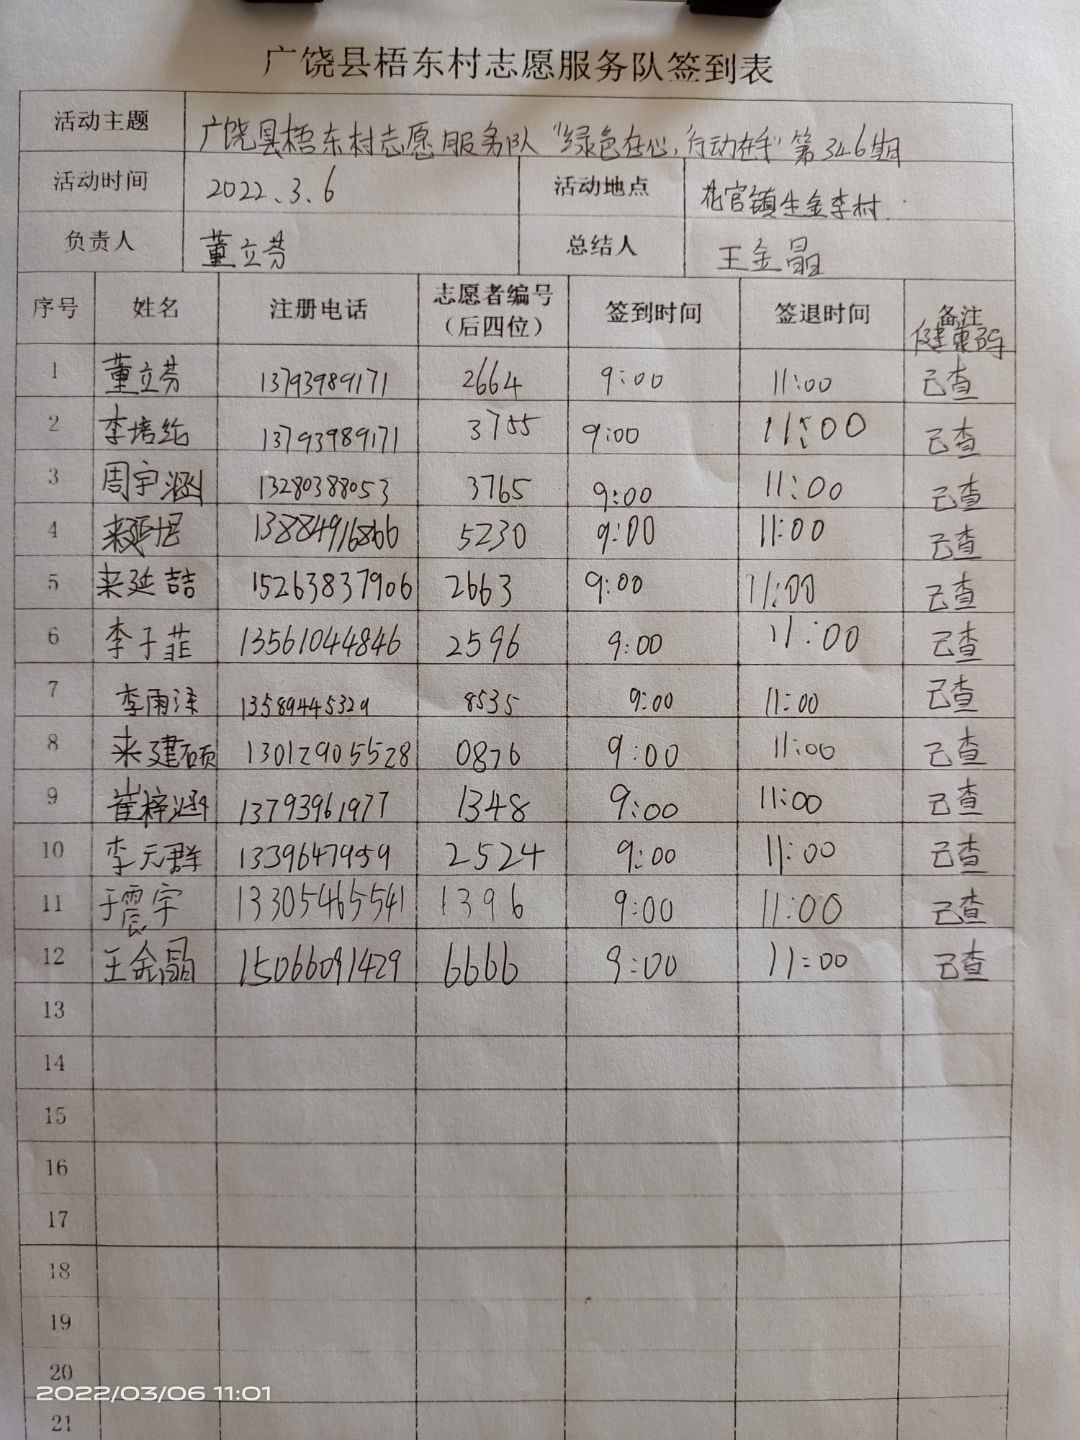 广饶县梧东村志愿服务队签到表
活动主题 广饶县梧东村志愿服务队“绿色在心,行动在手”第346期
活动时间 2022.3.6 活动地点 花官镇生金李村.
负责人 董立芬 总结人 王金晶
序号 姓名 注册电话 志愿者编号(后四位) 签到时间 签退时间 备注 健康码
1 董立芬 13793989171 2664 9:00 11:00 已查
2 李培纶 13793989171 3755 9:00 11:00 已查
3 周宇涵 13280388053 3765 9:00 11:00 已查
4 来延 13884916866 5230 9:00 11:00 已查
5 来延喆 15263837906 2663 9:00 11:00 已查
6 李子菲 13561044846 2596 9:00 11:00 已查
7 李雨泽 13589445329 8535 9:00 11:00 已查
8 来建硕 13012905528 0876 9:00 11:00 已查
9 崔梓涵 13793961977 1348 9:00 11:00 已查
10 李元群 1339647959 2524 9:00 11:00 已查
11 于震宇 13305465541 1396 9:00 11:00 已查
12 王金晶 15066091429 6666 9:00 11:00 已查
13
14
15
16
17
18
19
20
2022/03/06 11:01
21